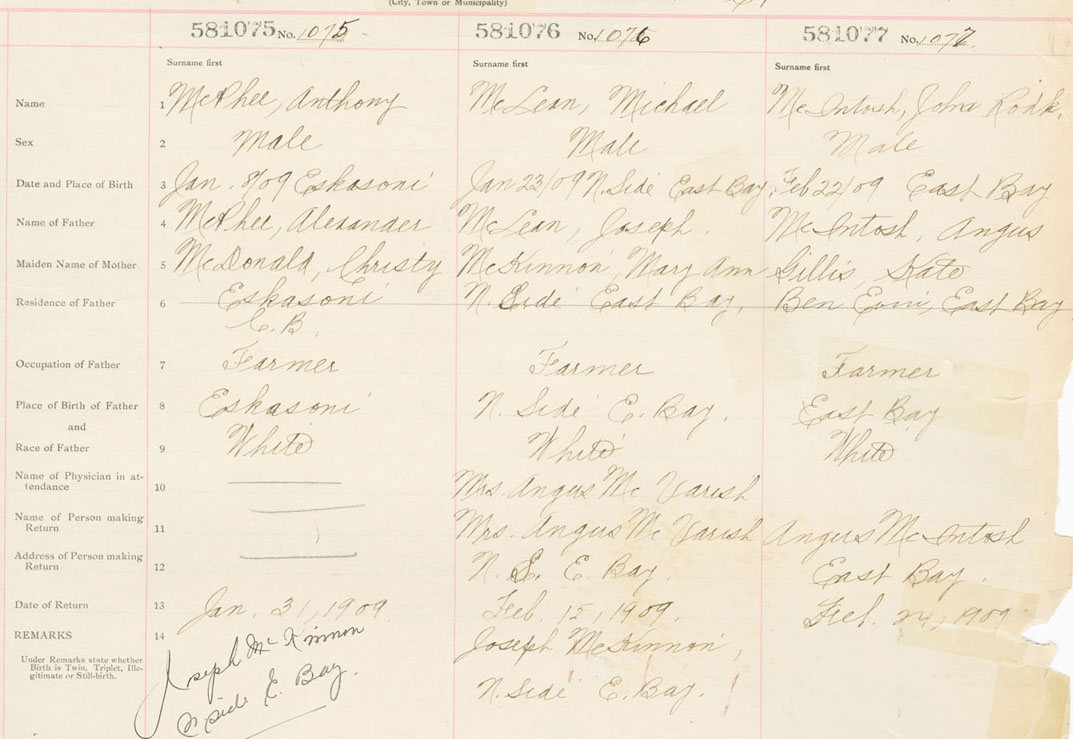 (City, Town or Municipality)
581075 No. 1075 581076 No. 1076 581077 No. 1077
Surname first Surname first Surname first
Name 1 McPhee, Anthony McLean, Michael McIntosh, John Rodk.
Sex 2 Male Male Male
Date and Place of Birth 3 Jan. 8/09 Eskasoni Jan 23/09 N. Side East Bay Feb 22/09 East Bay
Name of Father 4 McPhee, Alexander McLean, Joseph. McIntosh, Angus
Maiden Name of Mother 5 McDonald, Christy McKinnon, Mary Ann Gillis, Kate
Residence of Father 6 Eskasoni N. Side East Bay, Ben Eoin, East Bay
C.B.
Occupation of Father 7 Farmer Farmer Farmer
Place of Birth of Father 8 Eskasoni N. Side E. Bay. East Bay
and
Race of Father 9 White White White
Name of Physician in at-
tendance 10 Mrs. Angus Mc Varish
Name of Person making
Return 11 Mrs. Angus Mc Varish Angus McIntosh
Address of Person making
Return 12 N. S. E. Bay. East Bay.
Date of Return 13 Jan. 31, 1909 Feb. 15, 1909. Feb. 24, 1909
REMARKS 14 Joseph McKinnon Joseph McKinnon,
Under Remarks state whether
Birth is Twin, Triplet, Ille-
gitimate or Still-birth.
N Side E. Bay. N. Side E. Bay.